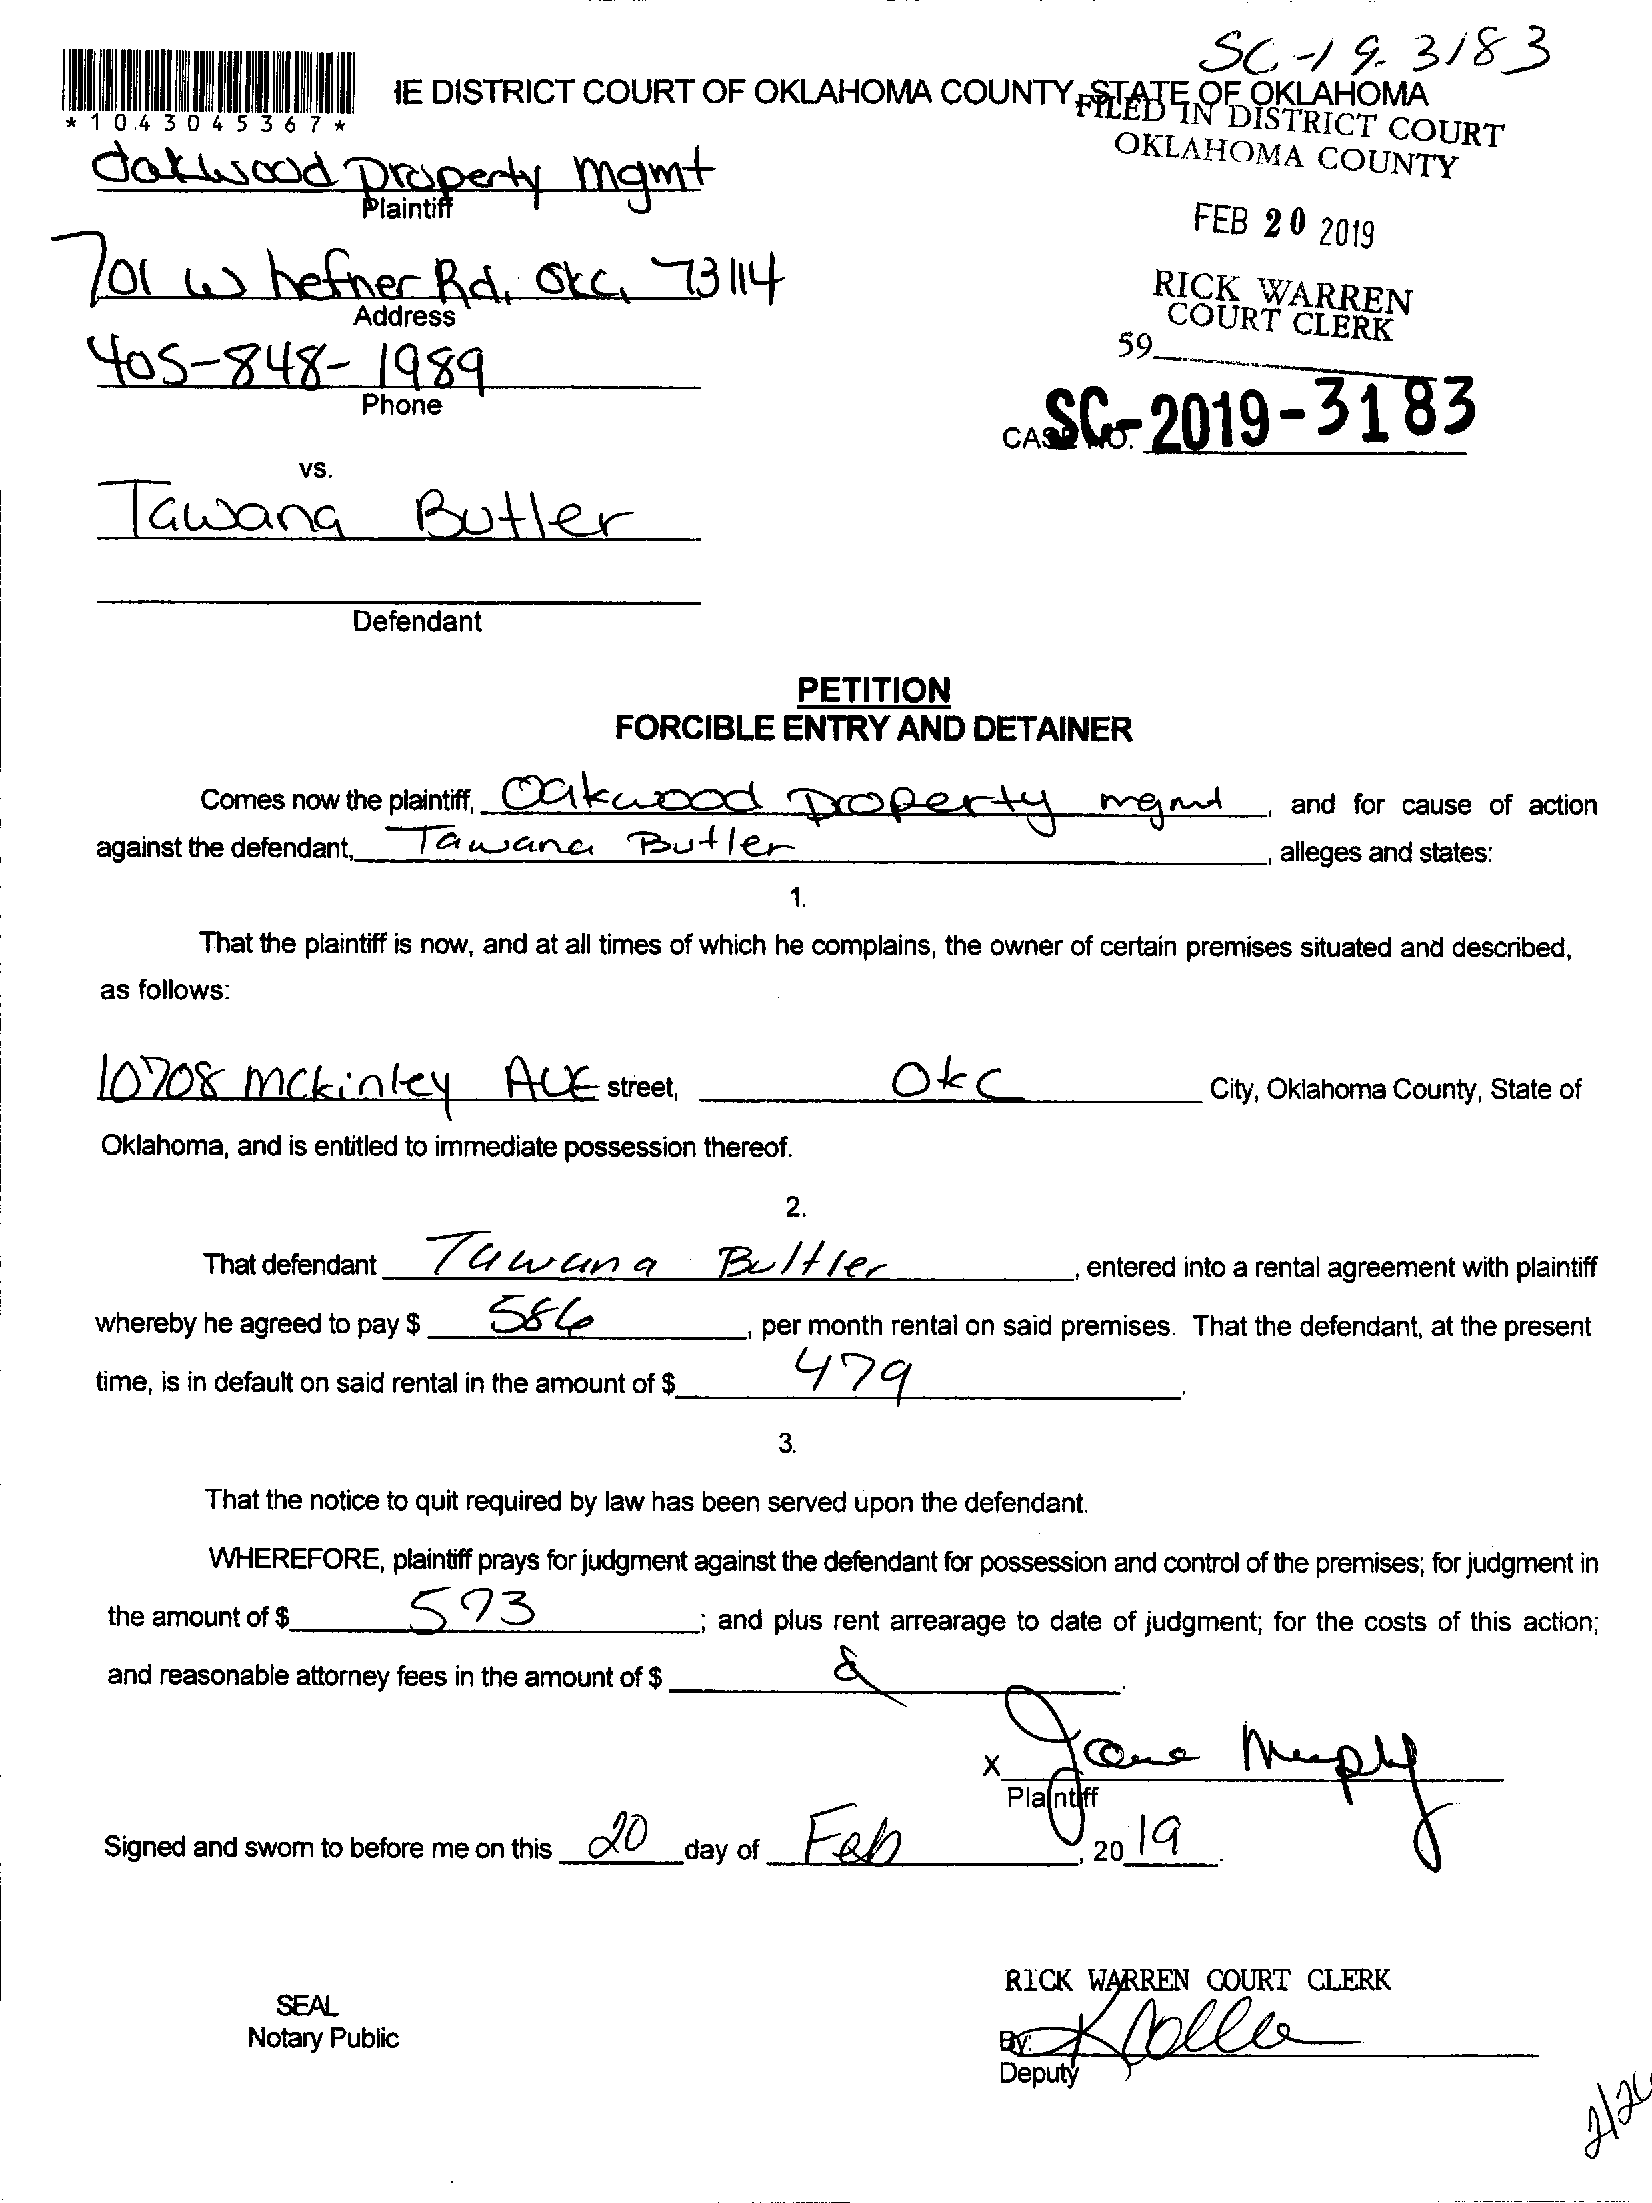 SC-19-3183
IE DISTRICT COURT OF OKLAHOMA COUNTY, STATE OF OKLAHOMA
*1043045367*
FILED IN DISTRICT COURT
OKLAHOMA COUNTY
Oakwood Property Mgmt
Plaintiff
FEB 20 2019
701 W hefner Rd, OKC, 73114
Address
RICK WARREN
COURT CLERK
59
405-848-1989
Phone
CASE NO. SC-2019-3183
vs.
Tawana Butler
Defendant
PETITION
FORCIBLE ENTRY AND DETAINER
Comes now the plaintiff, Oakwood Property mgmt, and for cause of action
against the defendant, Tawana Butler, alleges and states:
1.
That the plaintiff is now, and at all times of which he complains, the owner of certain premises situated and described,
as follows:
10708 Mckinley AVE street, OKC City, Oklahoma County, State of
Oklahoma, and is entitled to immediate possession thereof.
2.
That defendant Tawana Bultler, entered into a rental agreement with plaintiff
whereby he agreed to pay $ 586, per month rental on said premises. That the defendant, at the present
time, is in default on said rental in the amount of $ 479.
3.
That the notice to quit required by law has been served upon the defendant.
WHEREFORE, plaintiff prays for judgment against the defendant for possession and control of the premises; for judgment in
the amount of $ 573; and plus rent arrearage to date of judgment; for the costs of this action;
and reasonable attorney fees in the amount of $
x Jane Murphy
Plaintiff
Signed and sworn to before me on this 20 day of Feb, 2019.
RICK WARREN COURT CLERK
SEAL
Notary Public
By:
Deputy